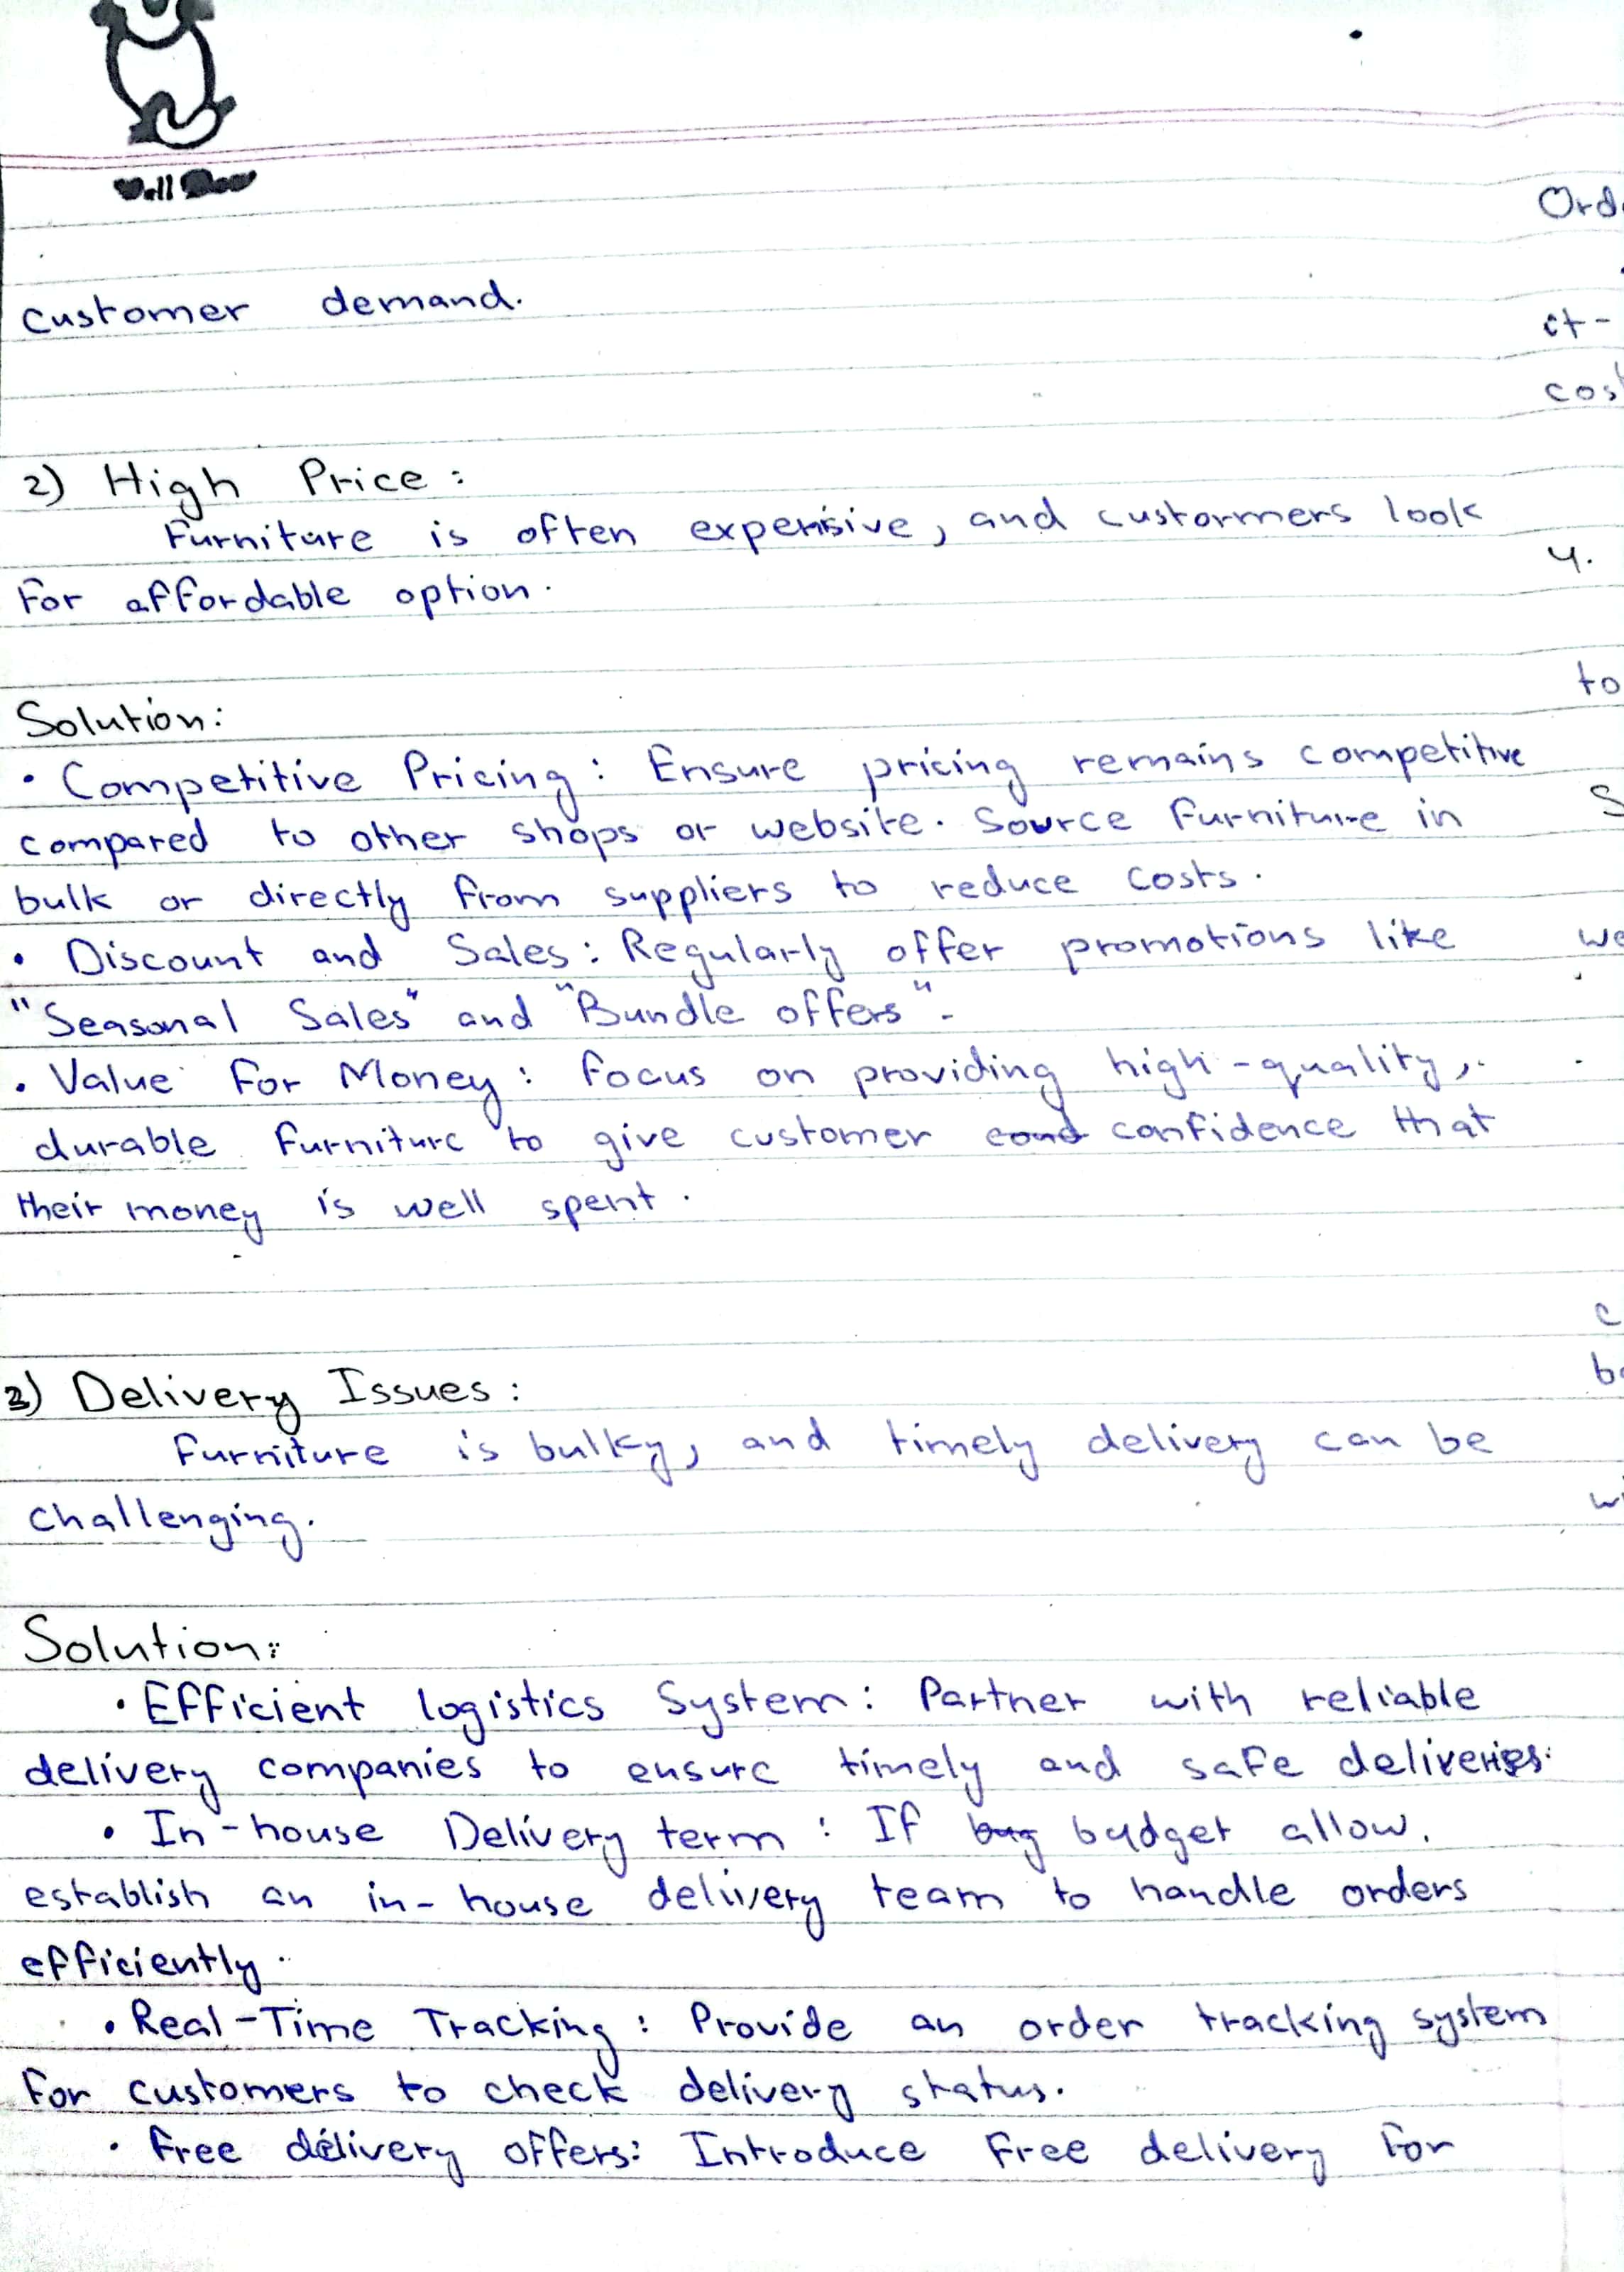 Well Done
customer demand.
2) High Price :
Furniture is often expensive, and custormers look
For affordable option.
Solution:
• Competitive Pricing : Ensure pricing remains competitive
compared to other shops or website. Source furniture in
bulk or directly from suppliers to reduce costs.
• Discount and Sales : Regularly offer promotions like
"Seasonal Sales" and "Bundle offers".
• Value For Money : focus on providing high-quality,
durable furniture to give customer confidence that
their money is well spent.
3) Delivery Issues :
Furniture is bulky, and timely delivery can be
challenging.
Solution:
• Efficient logistics System : Partner with reliable
delivery companies to ensure timely and safe deliveries.
• In-house Delivery term : If budget allow,
establish an in-house delivery team to handle orders
efficiently.
• Real-Time Tracking : Provide an order tracking system
For customers to check delivery status.
• Free delivery offers: Introduce Free delivery For
Ord
ct-
cos
4.
to
S
we
c
b
w